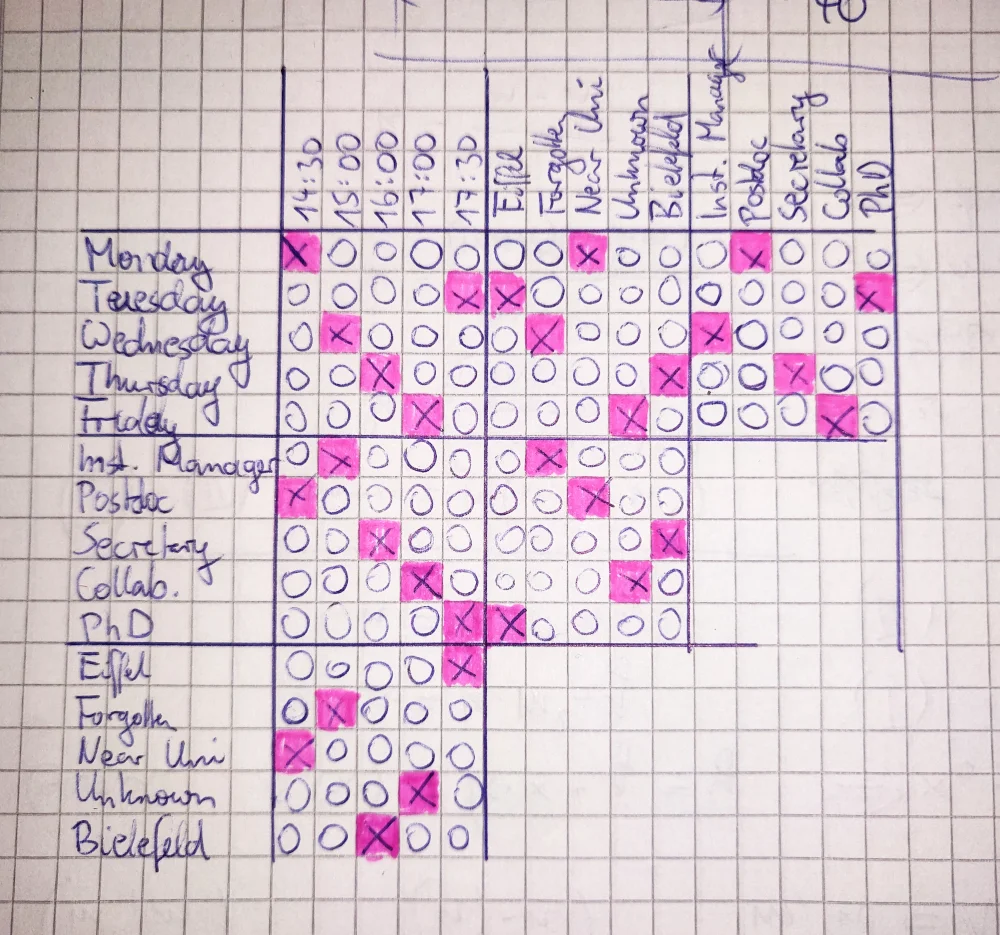 40
14:30 15:00 16:00 17:00 17:30 Eiffel Forgotten Near Uni Unknown Bielefeld Inst. Manager Postdoc Secretary Collab PhD
Monday X O O O O O O X O O O X O O O
Tuesday O O O O X X O O O O O O O O X
Wednesday O X O O O O X O O O X O O O O
Thursday O O X O O O O O O X O O X O O
Friday O O O X O O O O X O O O O X O
Inst. Manager O X O O O O X O O O
Postdoc X O O O O O O X O O
Secretary O O X O O O O O O X
Collab. O O O X O O O O X O
PhD O O O O X X O O O O
Eiffel O O O O X
Forgotten O X O O O
Near Uni X O O O O
Unknown O O O X O
Bielefeld O O X O O